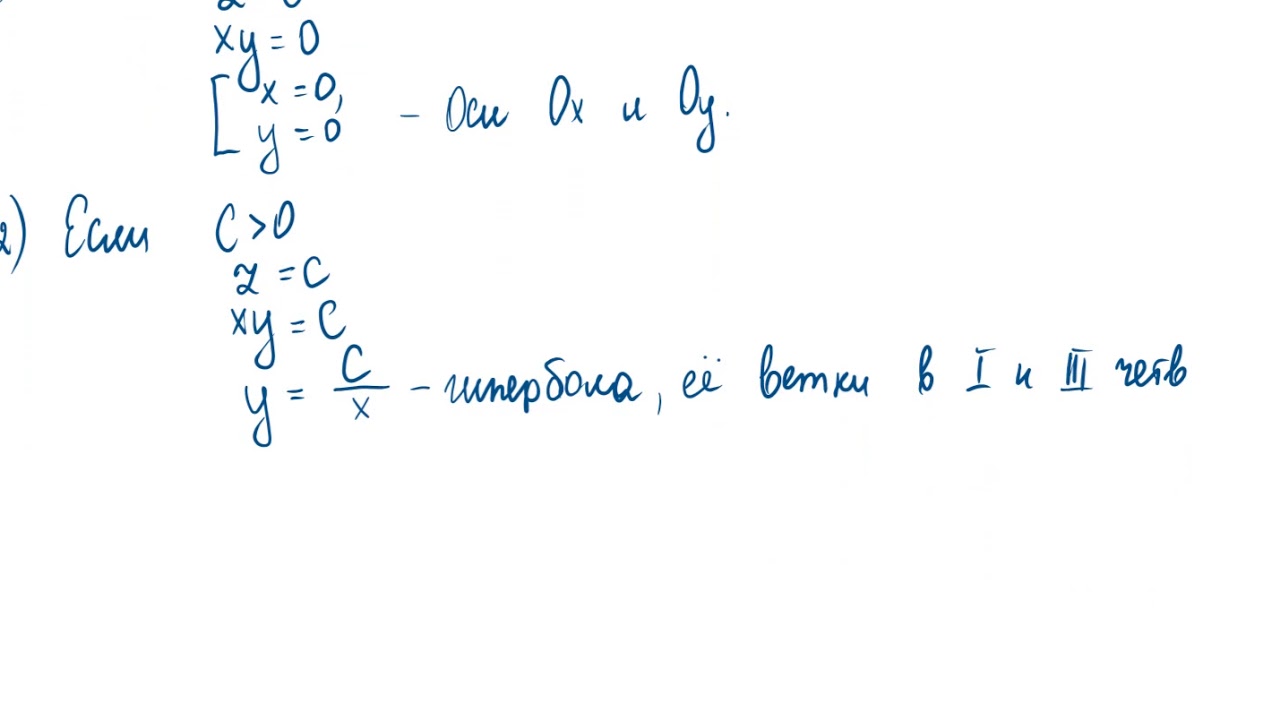 xy = 0
[ x = 0,
y = 0 - Оси Ox и Oy.
2) Если C > 0
z = C
xy = C
y = C/x - гипербола, её ветки в I и III четв